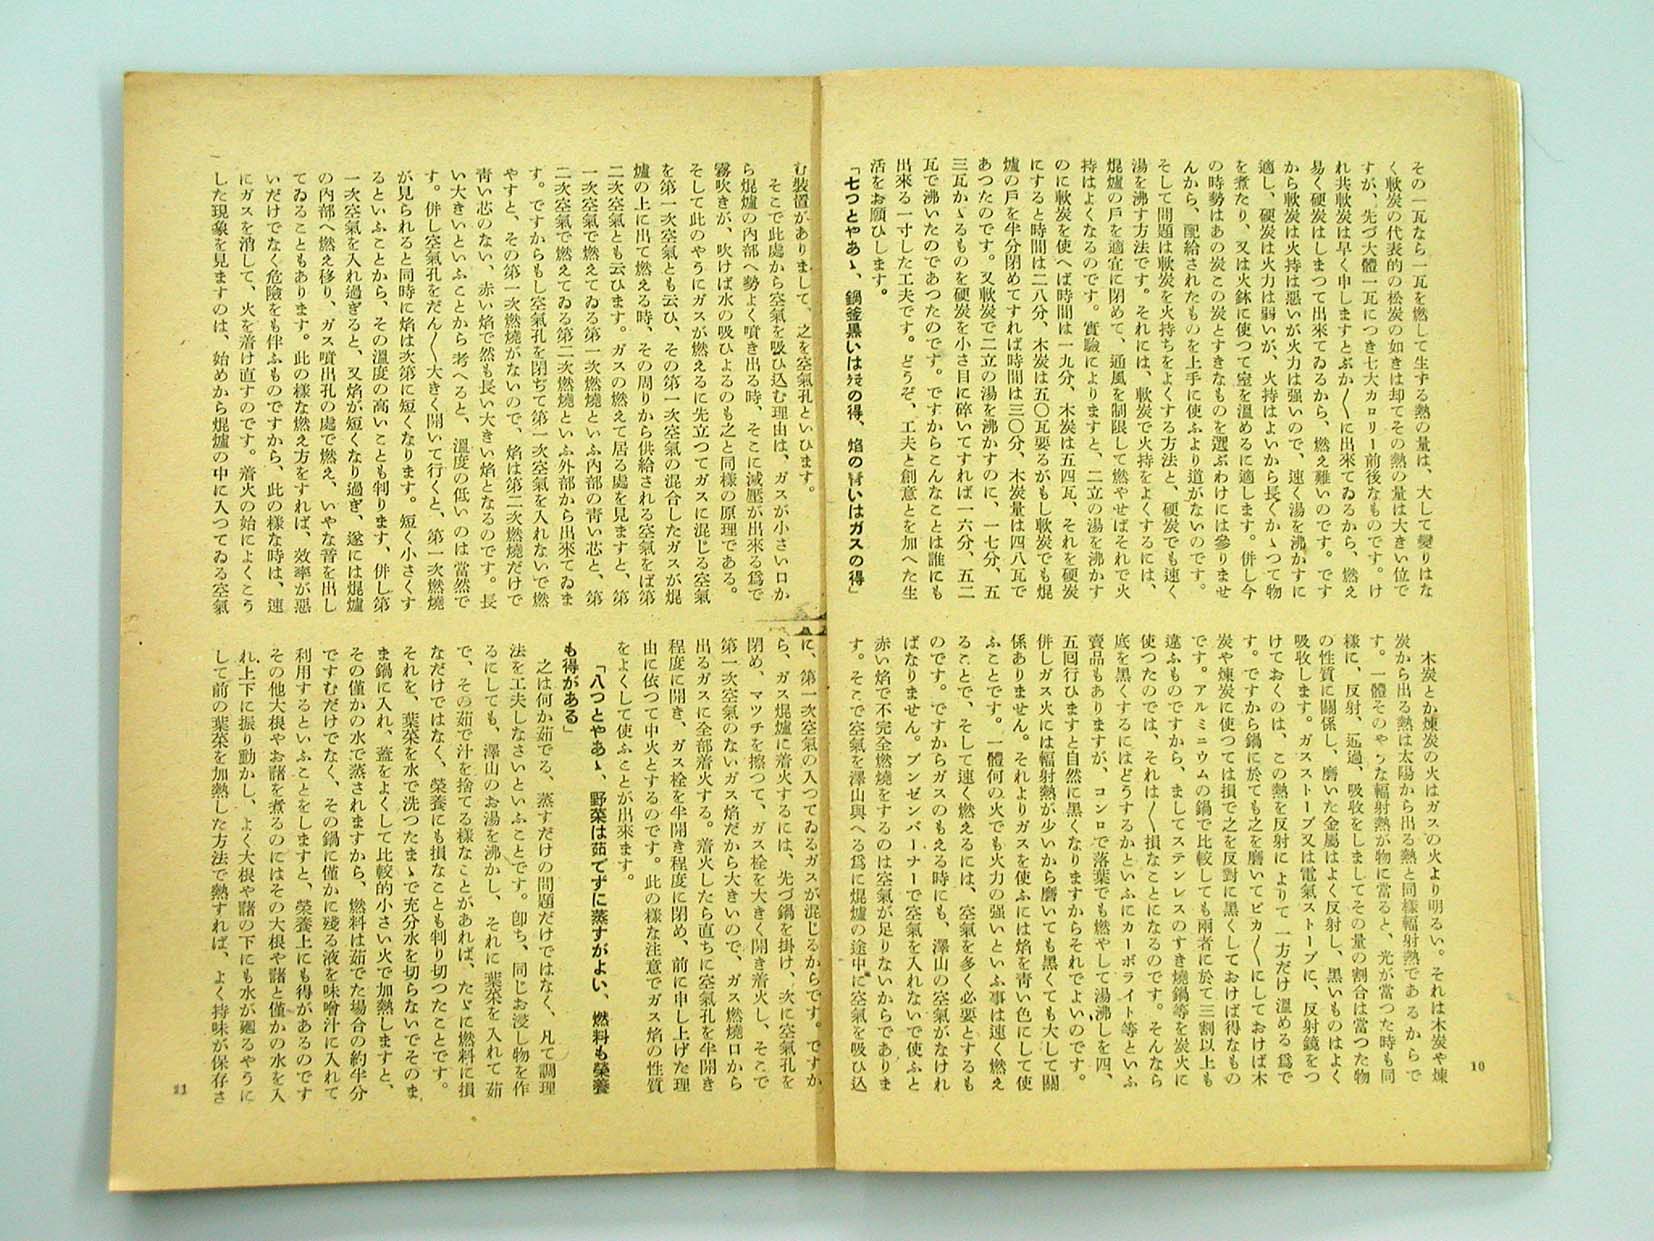 その一瓦なら一瓦を燃して生ずる熱の量は、大して變りはな
く軟炭の代表的の松炭の如きは却てその熱の量は大きい位で
すが、先づ大體一瓦につき七大カロリー前後なものです。け
れ共軟炭は早く申しますとぶか〱に出來てゐるから、燃え
易く硬炭はしまつて出來てゐるから、燃え難いのです。です
から軟炭は火持は惡いが火力は强いので、速く湯を沸かすに
適し、硬炭は火力は弱いが、火持はよいから長くかゝつて物
を煮たり、又は火鉢に使つて室を溫めるに適します。併し今
の時勢はあの炭この炭とすきなものを選ぶわけには參りませ
んから、配給されたものを上手に使ふより道がないのです。
そして問題は軟炭を火持ちをよくする方法と、硬炭でも速く
湯を沸す方法です。それには、軟炭で火持をよくするには、
焜爐の戶を適宜に閉めて、通風を制限して燃やせばそれで火
持はよくなるのです。實驗によりますと、二立の湯を沸かす
のに軟炭を使へば時間は一九分、木炭は五四瓦、それを硬炭
にすると時間は二八分、木炭は五〇瓦要るがもし軟炭でも焜
爐の戶を半分閉めてすれば時間は三〇分、木炭量は四八瓦で
あつたのです。又軟炭で二立の湯を沸かすのに、一七分、五
三瓦かゝるものを硬炭を小さ目に碎いてすれば一六分、五二
瓦で沸いたのであつたのです。ですからこんなことは誰にも
出來る一寸した工夫です。どうぞ、工夫と創意とを加へた生
活をお願ひします。
「七つとやあゝ、鍋釜黑いは炭の得、焰の靑いはガスの得」
木炭とか煉炭の火はガスの火より明るい。それは木炭や煉
炭から出る熱は太陽から出る熱と同樣輻射熱であるからで
す。一體そのやうな輻射熱が物に當ると、光が當つた時も同
樣に、反射、透過、吸收をしましてその量の割合は當つた物
の性質に關係し、磨いた金屬はよく反射し、黑いものはよく
吸收します。ガスストーブ又は電氣ストーブに、反射鏡をつ
けておくのは、この熱を反射によりて一方だけ溫める爲で
す。ですから鍋に於ても之を磨いてピカ〱にしておけば木
炭や煉炭に使つては損で之を反對に黑くしておけば得なもの
です。アルミニウムの鍋で比較しても兩者に於て三割以上も
違ふものですから、ましてステンレスのすき燒鍋等を炭火に
使つたのでは、それは〱損なことになるのです。そんなら
底を黑くするにはどうするかといふにカーボライト等といふ
賣品もありますが、コンロで落葉でも燃やして湯沸しを四、
五回行ひますと自然に黑くなりますからそれでよいのです。
併しガス火には輻射熱が少いから磨いても黑くても大して關
係ありません。それよりガスを使ふには焰を靑い色にして使
ふことです。一體何の火でも火力の强いといふ事は速く燃え
ることで、そして速く燃えるには、空氣を多く必要とするも
のです。ですからガスのもえる時にも、澤山の空氣がなけれ
ばなりません。ブンゼンバーナーで空氣を入れないで使ふと
赤い焰で不完全燃燒をするのは空氣が足りないからでありま
す。そこで空氣を澤山與へる爲に焜爐の途中に空氣を吸ひ込
10
む裝置がありまして、之を空氣孔といひます。
そこで此處から空氣を吸ひ込む理由は、ガスが小さい口か
ら焜爐の內部へ勢よく噴き出る時、そこに減壓が出來る爲で
霧吹きが、吹けば水の吸ひよるのも之と同樣の原理である。
そして此のやうにガスが燃えるに先立つてガスに混じる空氣
を第一次空氣とも云ひ、その第一次空氣の混合したガスが焜
爐の上に出て燃える時、その周りから供給される空氣をば第
二次空氣とも云ひます。ガスの燃えて居る處を見ますと、第
一次空氣で燃えてゐる第一次燃燒といふ內部の靑い芯と、第
二次空氣で燃えてゐる第二次燃燒といふ外部から出來てゐま
す。ですからもし空氣孔を閉ぢて第一次空氣を入れないで燃
やすと、その第一次燃燒がないので、焰は第二次燃燒だけで
靑い芯のない、赤い焰で然も長い大きい焰となるのです。長
い大きいといふことから考へると、溫度の低いのは當然で
す。併し空氣孔をだん〱大きく開いて行くと、第一次燃燒
が見られると同時に焰は次第に短くなります。短く小さくす
るといふことから、その溫度の高いことも判ります、併し第
一次空氣を入れ過ぎると、又焰が短くなり過ぎ、遂には焜爐
の內部へ燃え移り、ガス噴出孔の處で燃え、いやな音を出し
てゐることもあります。此の樣な燃え方をすれば、效率が惡
いだけでなく危險をも伴ふものですから、此の樣な時は、速
にガスを消して、火を着け直すのです。着火の始によくこう
した現象を見ますのは、始めから焜爐の中に入つてゐる空氣
に、第一次空氣の入つてゐるガスが混じるからです。ですか
ら、ガス焜爐に着火するには、先づ鍋を掛け、次に空氣孔を
閉め、マツチを擦つて、ガス栓を大きく開き着火し、そこで
第一次空氣のないガス焰だから大きいので、ガス燃燒口から
出るガスに全部着火する。着火したら直ちに空氣孔を半開き
程度に開き、ガス栓を半開き程度に閉め、前に申し上げた理
由に依つて中火とするのです。此の樣な注意でガス焰の性質
をよくして使ふことが出來ます。
「八つとやあゝ、野菜は茹でずに蒸すがよい、燃料も榮養
も得がある」
之は何か茹でる、蒸すだけの問題だけではなく、凡て調理
法を工夫しなさいといふことです。卽ち、同じお浸し物を作
るにしても、澤山のお湯を沸かし、それに葉菜を入れて茹
で、その茹で汁を捨てる樣なことがあれば、たゞに燃料に損
なだけではなく、榮養にも損なことも判り切つたことです。
それを、葉菜を水で洗つたまゝで充分水を切らないでそのま
ま鍋に入れ、蓋をよくして比較的小さい火で加熱しますと、
その僅かの水で蒸されますから、燃料は茹でた場合の約半分
ですむだけでなく、その鍋に僅かに殘る液を味噌汁に入れて
利用するといふことをしますと、榮養上にも得があるのです
その他大根やお藷を煮るのにはその大根や藷と僅かの水を入
れ上下に振り動かし、よく大根や藷の下にも水が廻るやうに
して前の葉菜を加熱した方法で熱すれば、よく持味が保存さ
11